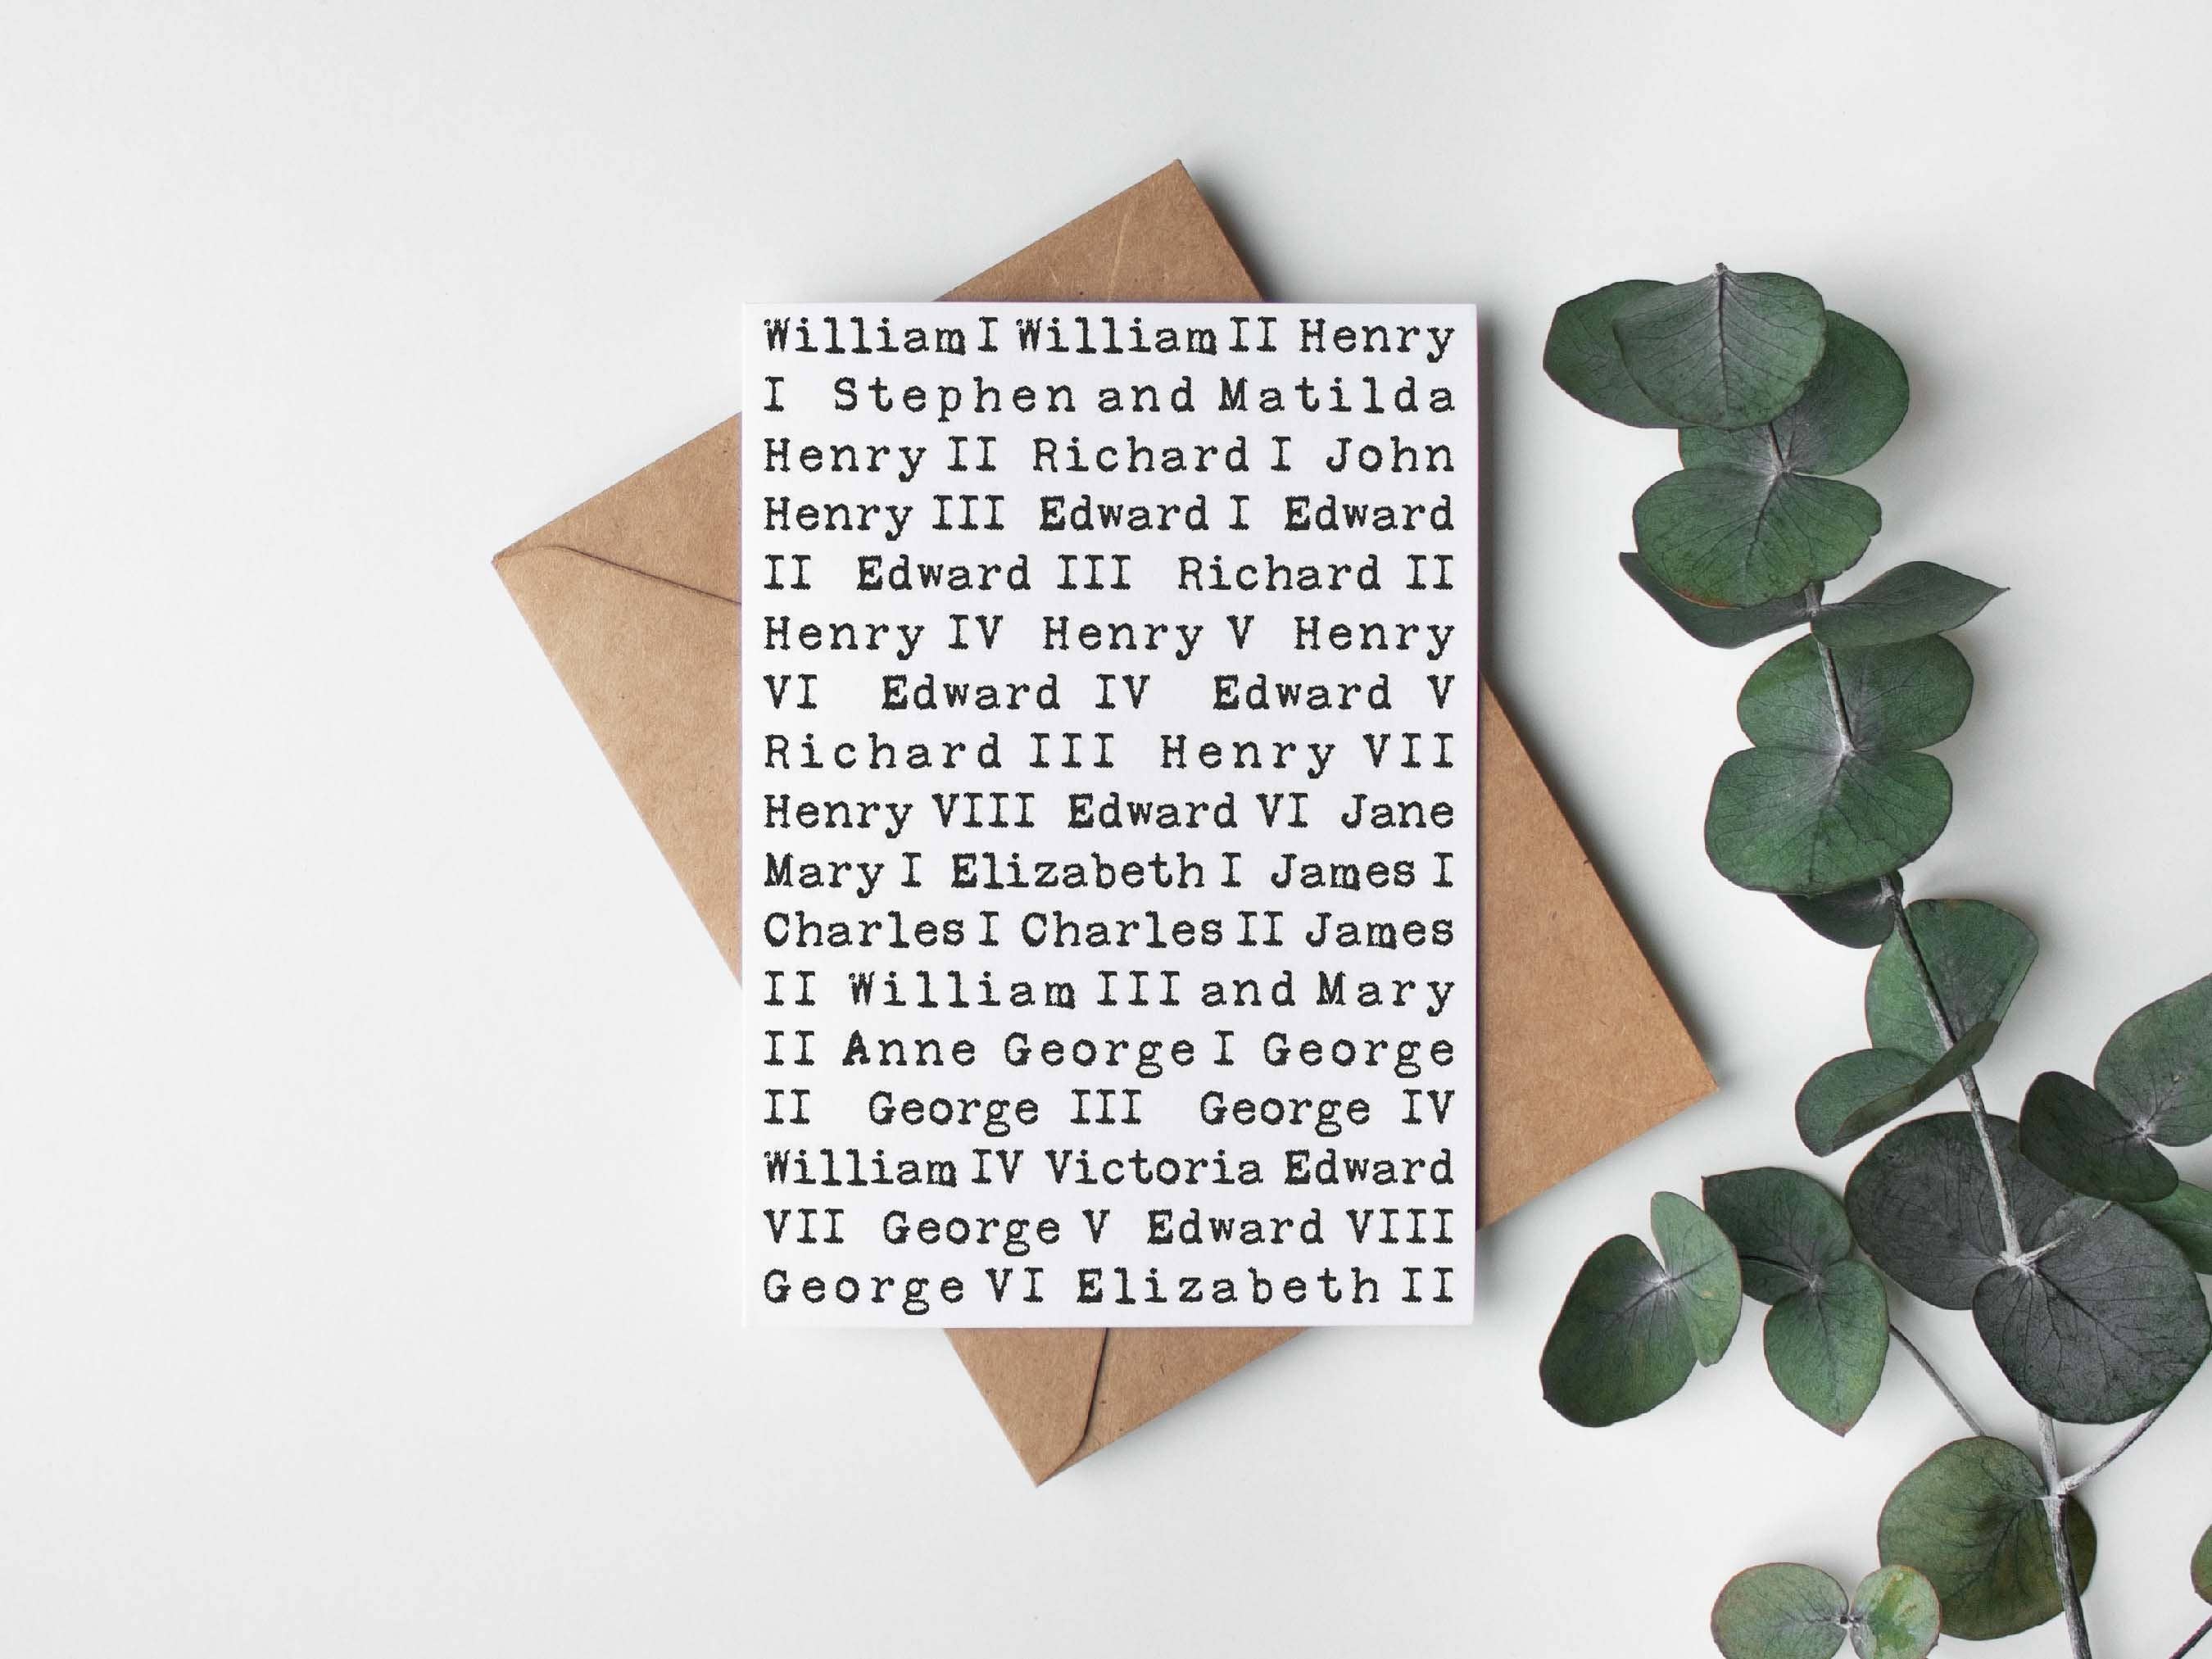 William I William II Henry
I Stephen and Matilda
Henry II Richard I John
Henry III Edward I Edward
II Edward III Richard II
Henry IV Henry V Henry
VI Edward IV Edward V
Richard III Henry VII
Henry VIII Edward VI Jane
Mary I Elizabeth I James I
Charles I Charles II James
II William III and Mary
II Anne George I George
II George III George IV
William IV Victoria Edward
VII George V Edward VIII
George VI Elizabeth II